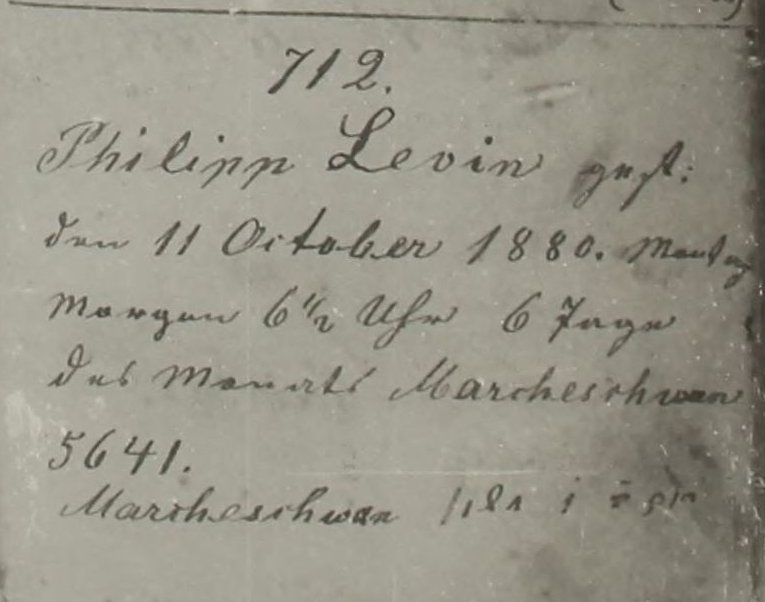 712.
Philipp Levin gest:
den 11 October 1880. Montag
Morgen 6 1/2 Uhr 6 Tage
des Monats Marcheschwan
5641.
Marcheschwan